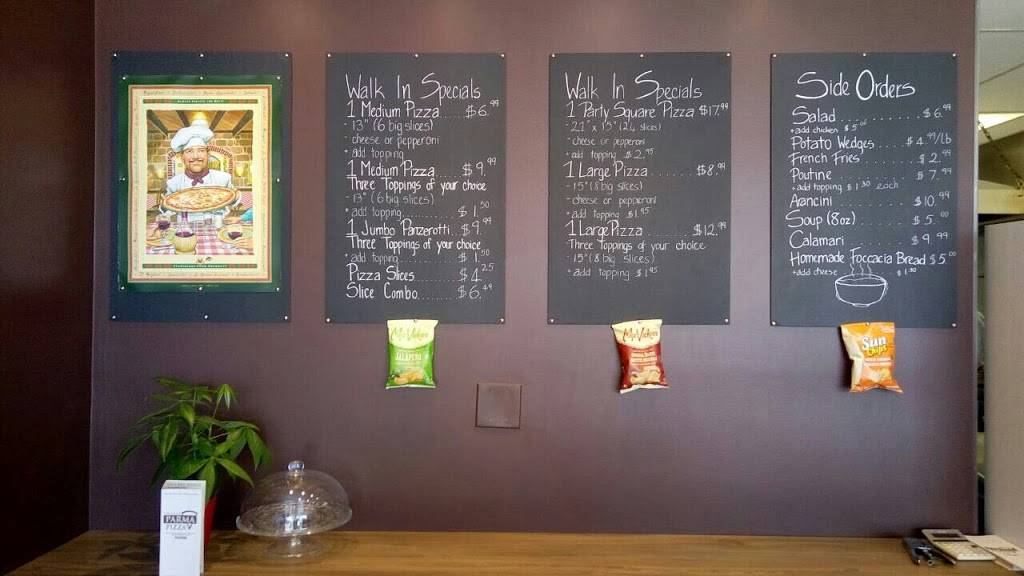 Walk In Specials
1 Medium Pizza..... $6.99
- 13" (6 big slices)
- cheese or pepperoni
* add topping
1 Medium Pizza..... $9.99
Three Toppings of your choice
- 13" (6 big slices)
* add topping........ $1.50
1 Jumbo Panzerotti. $9.99
Three Toppings of your choice
* add topping........ $1.50
Pizza Slices........ $4.25
Slice Combo........ $6.49
Walk In Specials
1 Party Square Pizza $17.99
- 21" x 15" (24 slices)
- cheese or pepperoni
* add topping $2.95
1 Large Pizza........ $8.99
- 15" (8 big slices)
- cheese or pepperoni
* add topping $1.95
1 Large Pizza........ $12.99
Three Toppings of your choice
- 15" (8 big slices)
* add topping $1.95
Side Orders
Salad............ $6.99
* add chicken $5.00
Potato Wedges.... $4.99/lb
French Fries...... $2.99
Poutine.......... $7.99
* add topping $1.30 each
Arancini.......... $10.99
Soup (8oz)....... $5.00
Calamari......... $9.99
Homemade Foccacia Bread $5.00
* add cheese $1.50
Miss Vickie's
JALAPEÑO
Miss Vickie's
Sun
Chips
PARMA
PIZZA